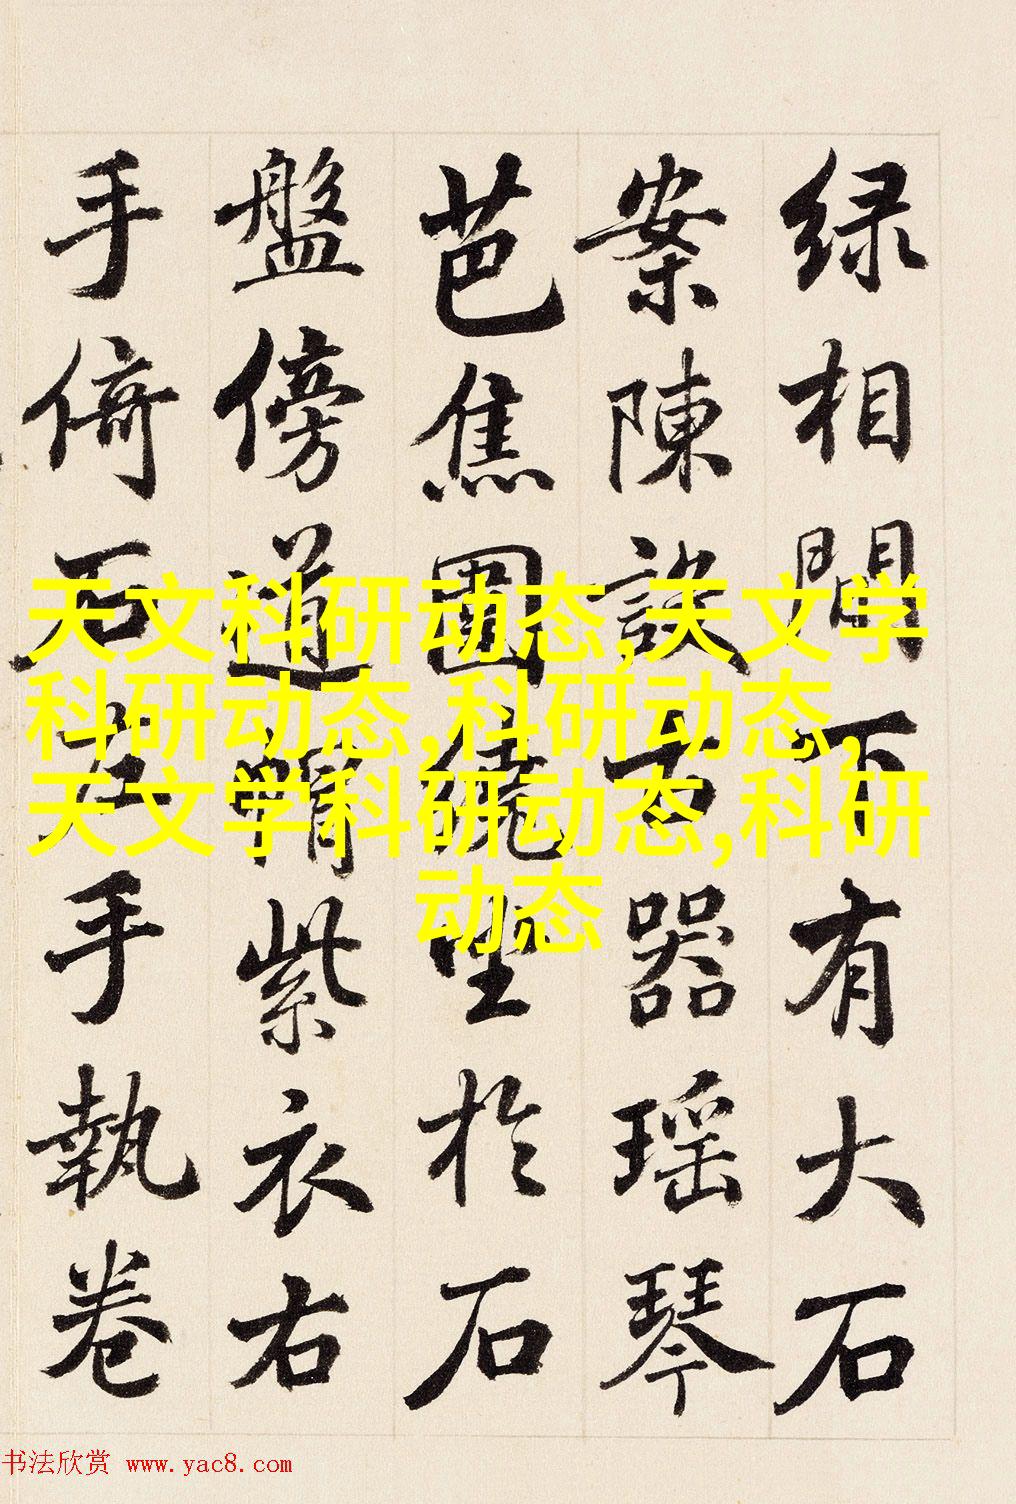 绿相間下有大石
案陳設古器瑶琴
芭焦圍繞坐於石
盤傍道帽紫衣右
手倚石左手執卷
天文科研动态,天文学
科研动态,科研动态,
天文学科研动态,科研
动态
书法欣赏 www.yac8.com